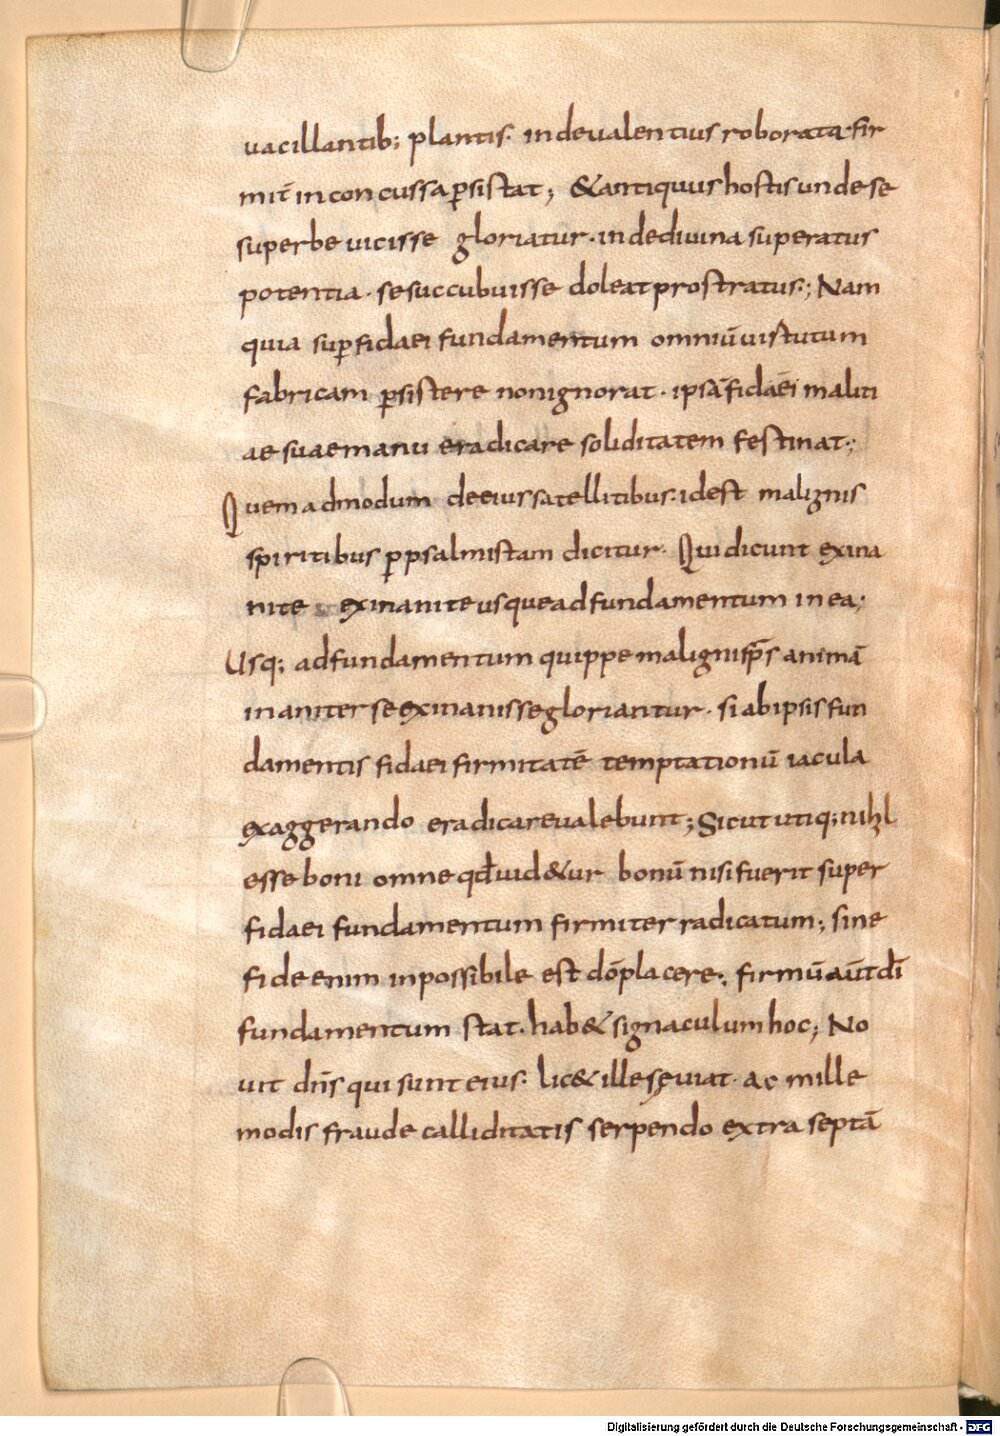 uacillantib; plantis· indeualentius roborata· fir
mit̄ inconcussa ꝑsistat; & antiquus hostis unde se
superbe uicisse gloriatur· inde diuina superatus
potentia· se succubuisse doleat prostratus:; Nam
quia suꝑ fidaei fundamentum omniū uirtutum
fabricam ꝑsistere non ignorat· ipsā fidaei maliti
ae suae manu eradicare soliditatem festinat:;
Quem admodum de eius satellitibus· id est malignis
spiritibus ꝑ psalmistam dicitur· Qui dicunt exina
nite exinanite usque ad fundamentum in ea;
Usq; ad fundamentum quippe maligni sp̄s animā
inaniter se exinanisse gloriantur· si ab ipsis fun
damentis fidaei firmitatē temptationū iacula
exaggerando eradicare ualebunt; Sicut utiq; nihl
esse boni omne qđ uid&ur bonū nisi fuerit super
fidaei fundamentum firmiter radicatum; sine
fide enim inpossibile est dō placere:, firmū aūt dī
fundamentum stat· hab& signaculum hoc; No
uit dn̄s qui sunt eius· lic& ille sęuiat· ac mille
modis fraude calliditatis serpendo extra septā
Digitalisierung gefördert durch die Deutsche Forschungsgemeinschaft - DFG